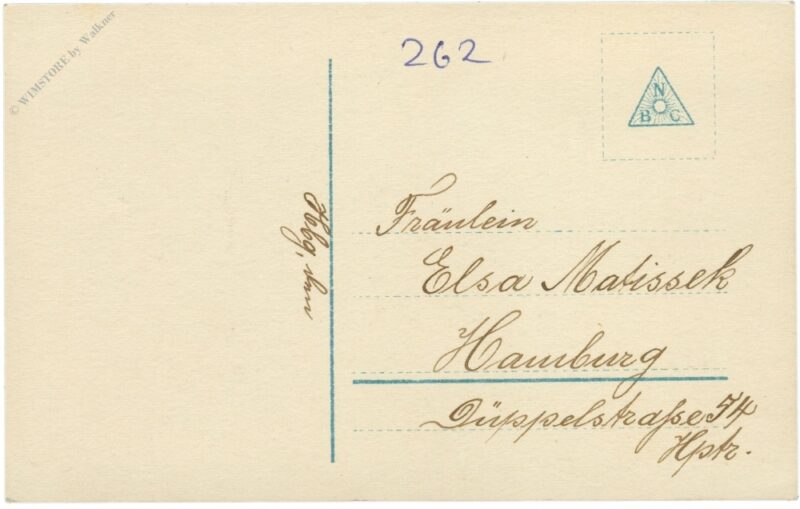 © WIMSTORE by Walkner
262
N
B C
Fräulein
Elsa Matissek
Hamburg
Düppelstraße 54
Hptr.
Hbg,